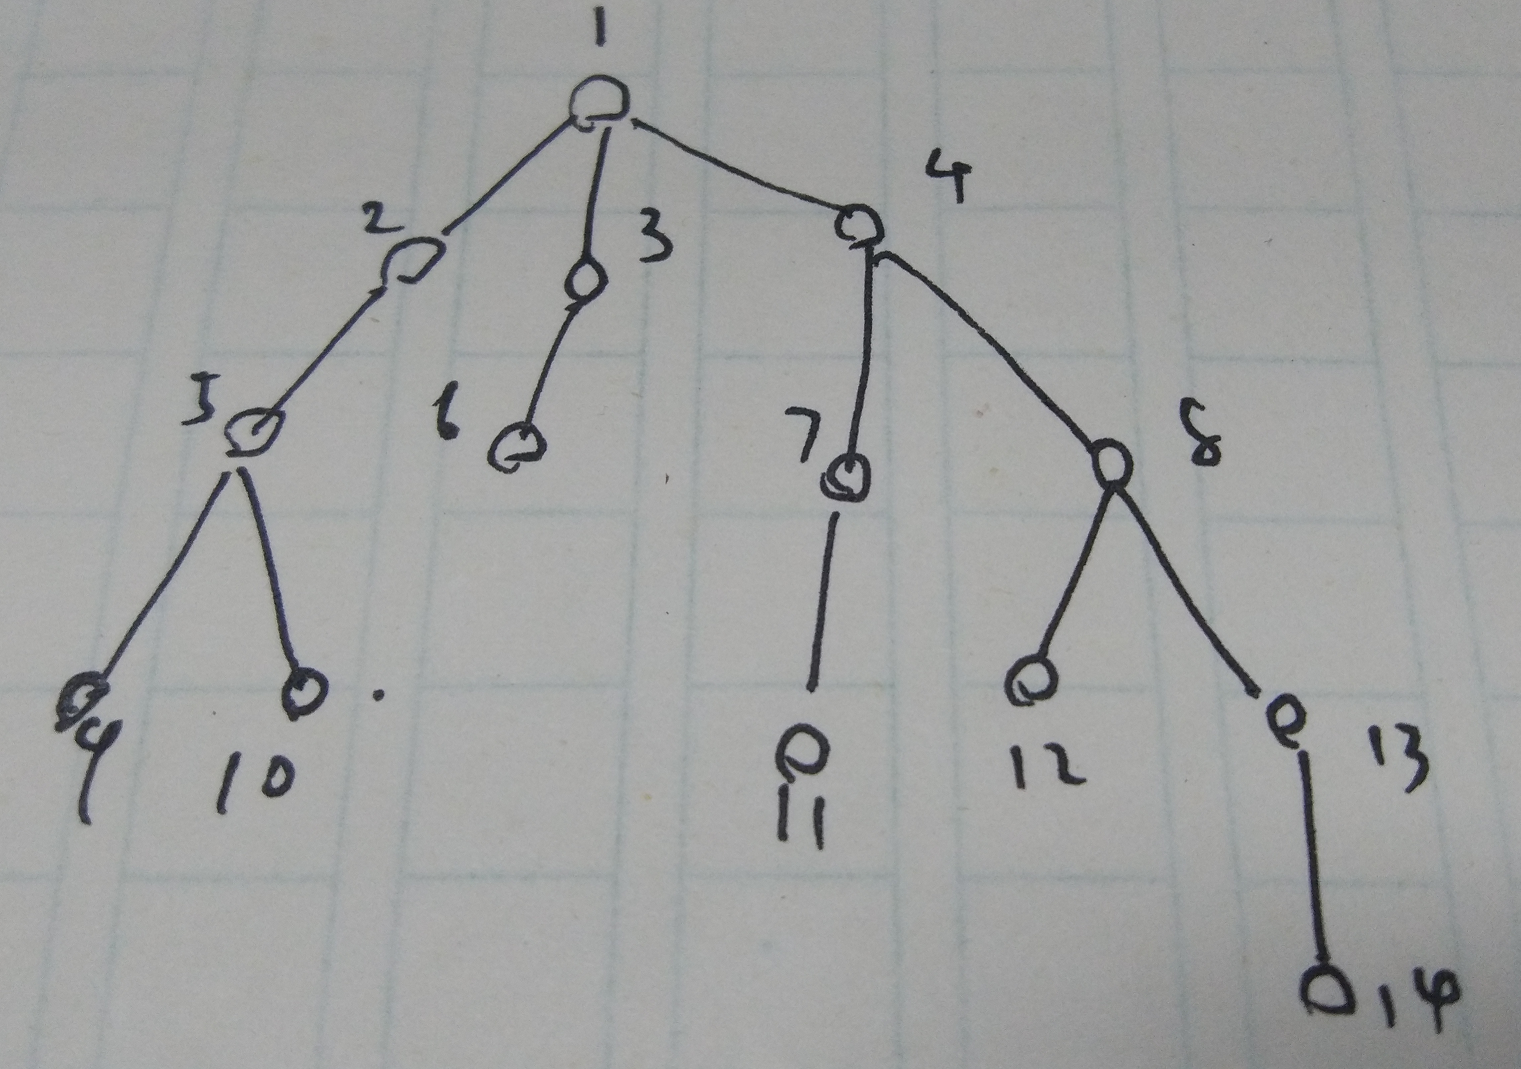 1
2 3 4
5 6 7 8
9 10 11 12 13
14